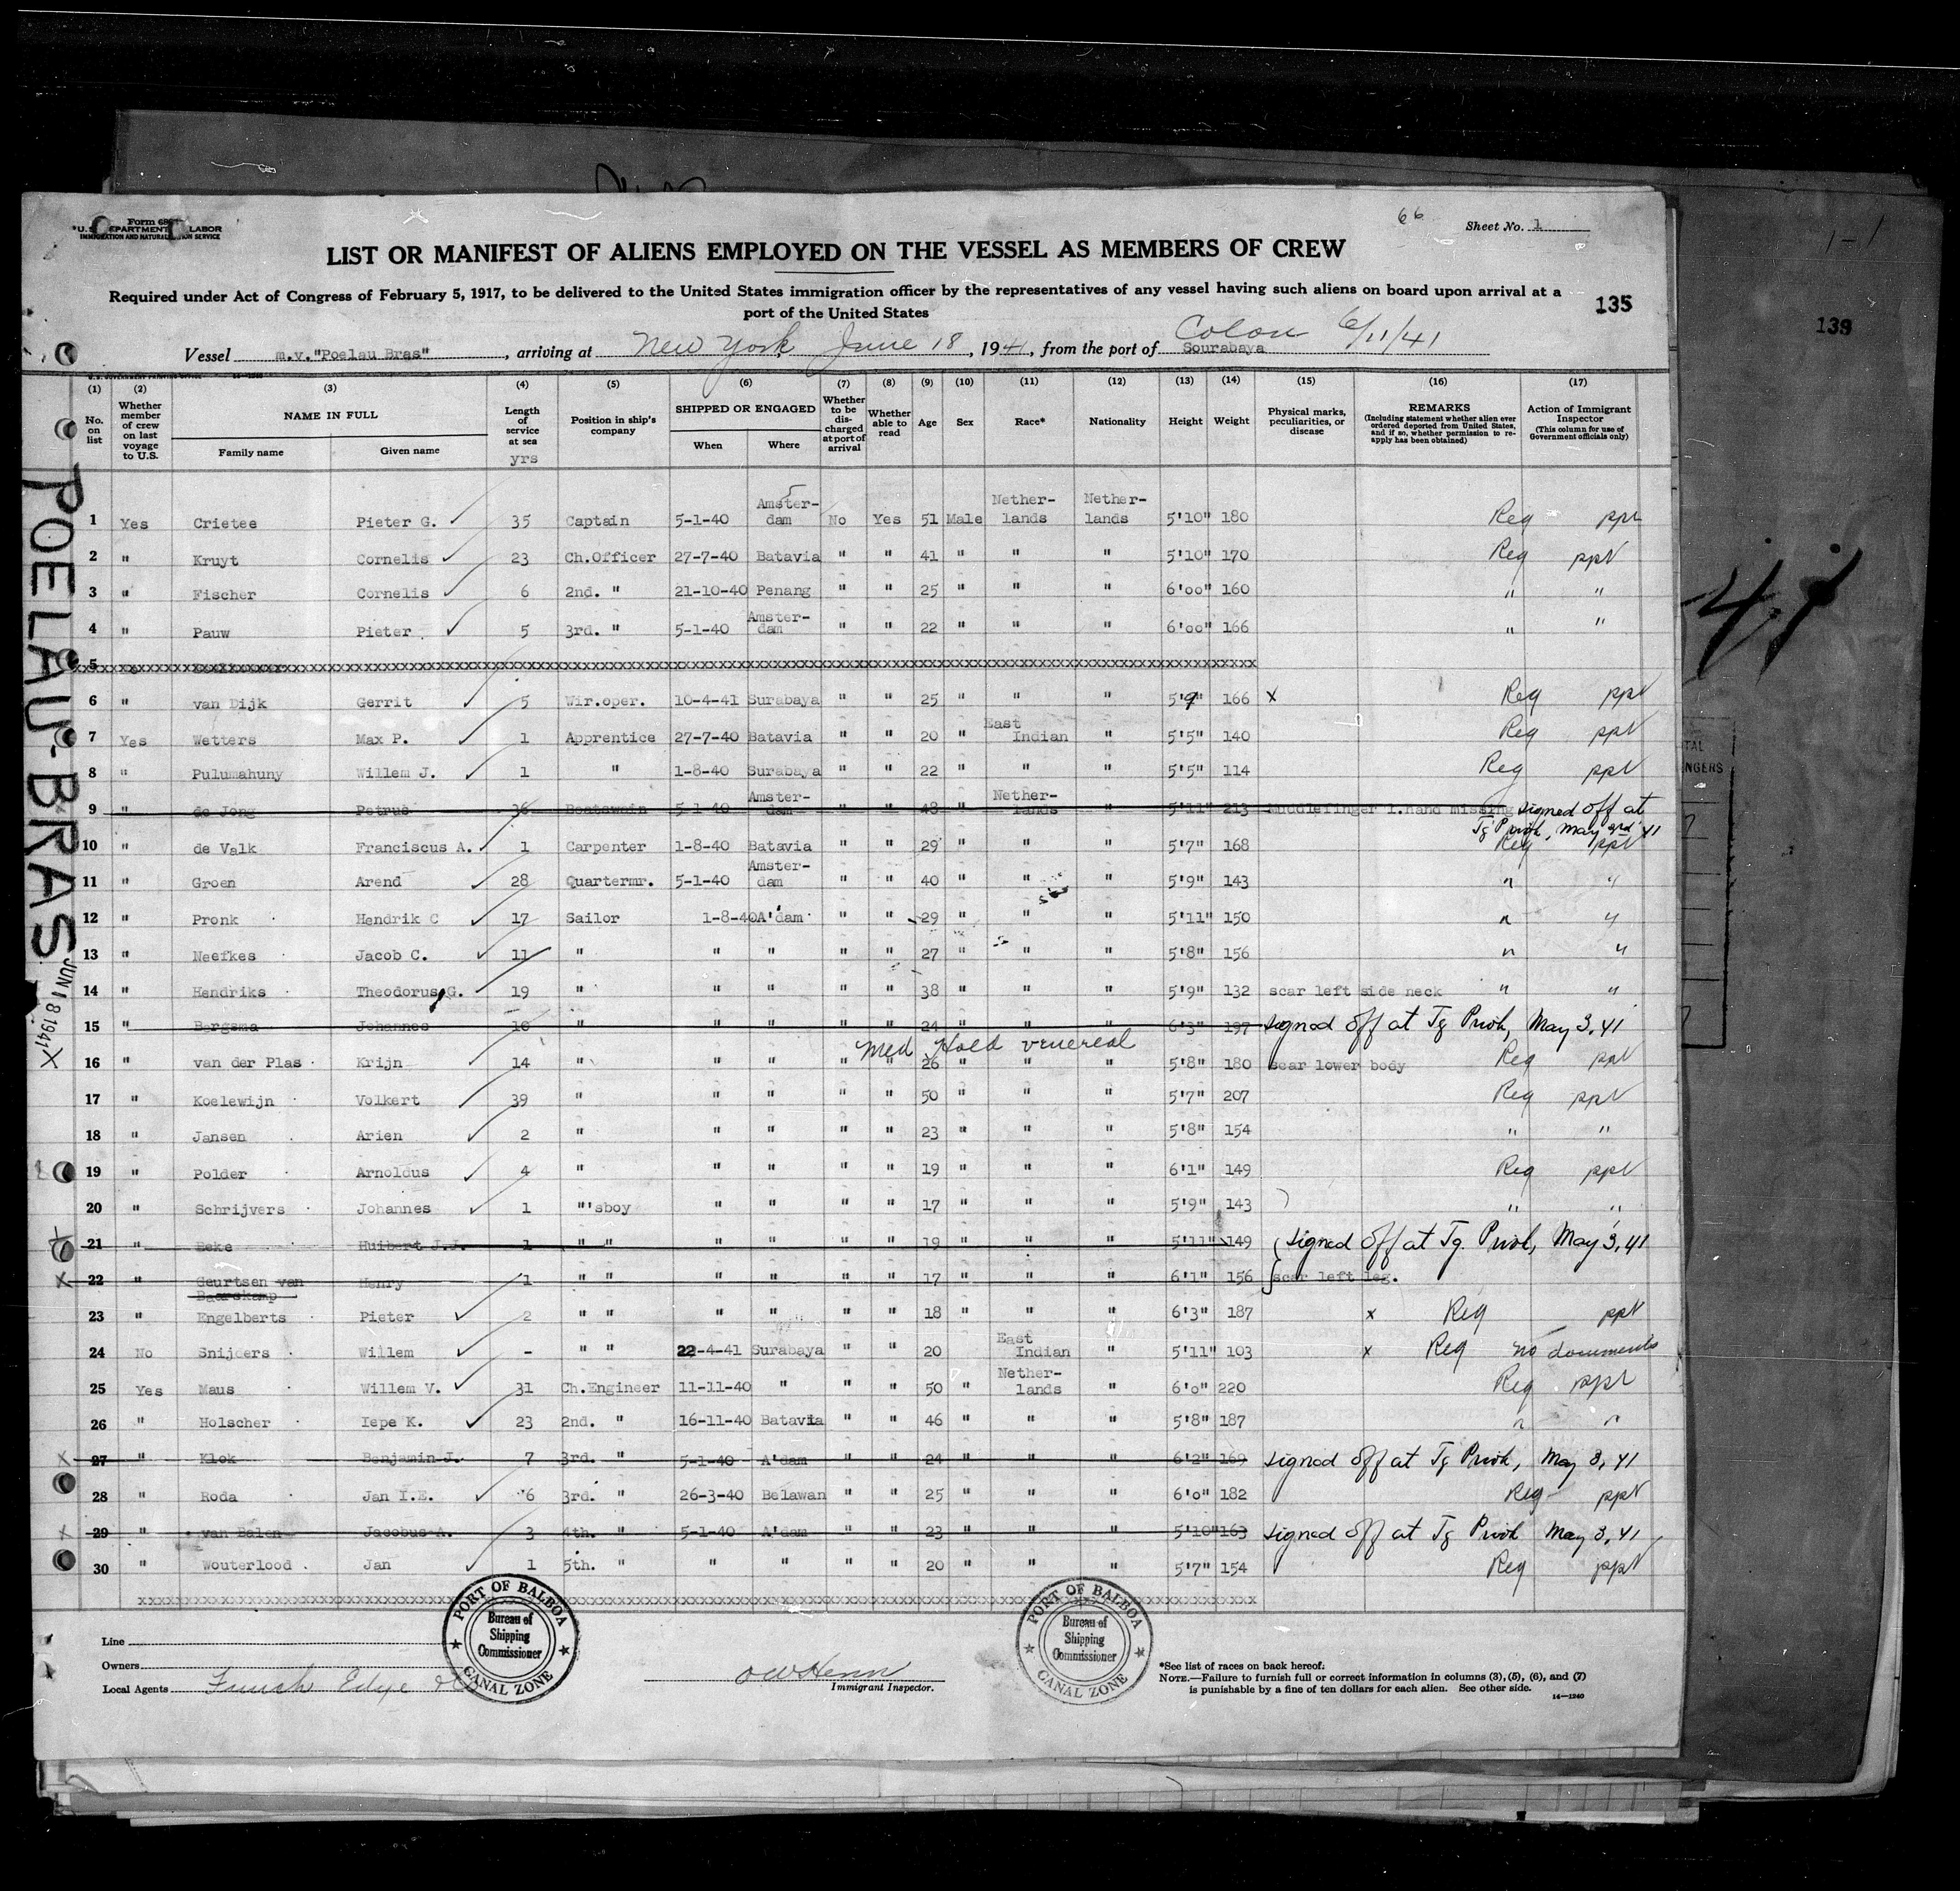 Form 68
U.S. DEPARTMENT LABOR
IMMIGRATION AND NATURALIZATION SERVICE
66
Sheet No. 1
LIST OR MANIFEST OF ALIENS EMPLOYED ON THE VESSEL AS MEMBERS OF CREW
Required under Act of Congress of February 5, 1917, to be delivered to the United States immigration officer by the representatives of any vessel having such aliens on board upon arrival at a
port of the United States
135
139
Colon 6/11/41
Vessel m.v."Poelau Bras", arriving at New York June 18, 1941, from the port of Sourabaya
(1) (2) (3) (4) (5) (6) (7) (8) (9) (10) (11) (12) (13) (14) (15) (16) (17)
No. on list
Whether member of crew on last voyage to U.S.
NAME IN FULL
Family name
Given name
Length of service at sea
yrs
Position in ship's company
SHIPPED OR ENGAGED
When
Where
Whether to be discharged at port of arrival
Whether able to read
Age
Sex
Race*
Nationality
Height
Weight
Physical marks, peculiarities, or disease
REMARKS
(Including statement whether alien ever ordered deported from United States, and if so, whether permission to reapply has been obtained)
Action of Immigrant Inspector
(This column for use of Government officials only)
1 Yes Crietee Pieter G. 35 Captain 5-1-40 Amster-dam No Yes 51 Male Nether-lands Nether-lands 5'10" 180 Reg ppt
2 " Kruyt Cornelis 23 Ch.Officer 27-7-40 Batavia " " 41 " " " 5'10" 170 Reg ppt
3 " Fischer Cornelis 6 2nd. " 21-10-40 Penang " " 25 " " " 6'00" 160 " "
4 " Pauw Pieter 5 3rd. " 5-1-40 Amster-dam " " 22 " " " 6'00" 166 " "
5
6 " van Dijk Gerrit 5 Wir.oper. 10-4-41 Surabaya " " 25 " " " 5'9" 166 x Reg ppt
7 Yes Wetters Max P. 1 Apprentice 27-7-40 Batavia " " 20 " East Indian " 5'5" 140 Reg ppt
8 " Pulumahuny Willem J. 1 " 1-8-40 Surabaya " " 22 " " " 5'5" 114 Reg ppt
9 " de Jong Petrus 36 Boatswain 5-1-40 Amster-dam " " 48 " Nether-lands " 5'11" 213 middlefinger l.hand missing signed off at
Tg Priok, May 3rd 41
10 " de Valk Franciscus A. 1 Carpenter 1-8-40 Batavia " " 29 " " " 5'7" 168 Reg ppt
11 " Groen Arend 28 Quartermr. 5-1-40 Amster-dam " " 40 " " " 5'9" 143 " "
12 " Pronk Hendrik C 17 Sailor 1-8-40 A'dam " " 29 " " " 5'11" 150 " "
13 " Neefkes Jacob C. 11 " " " " " 27 " " " 5'8" 156 " "
14 " Hendriks Theodorus G. 19 " " " " " 38 " " " 5'9" 132 scar left side neck " "
15 " Bergsma Johannes 10 " " " " " 24 " " " 6'3" 197 signed off at Tg Priok, May 3, 41
Med Hold venereal
16 " van der Plas Krijn 14 " " " " " 26 " " " 5'8" 180 scar lower body Reg ppt
17 " Koelewijn Volkert 39 " " " " " 50 " " " 5'7" 207 Reg ppt
18 " Jansen Arien 2 " " " " " 23 " " " 5'8" 154 " "
19 " Polder Arnoldus 4 " " " " " 19 " " " 6'1" 149 Reg ppt
20 " Schrijvers Johannes 1 "'sboy " " " " 17 " " " 5'9" 143 " "
21 " Beke Huibert J.J. 1 " " " " " " 19 " " " 5'11" 149 signed off at Tg. Priok, May 3, 41
22 " Geurtsen van Baarskamp Henry 1 " " " " " " 17 " " " 6'1" 156 scar left leg.
23 " Engelberts Pieter 2 " " " " " " 18 " " " 6'3" 187 x Reg ppt
24 No Snijders Willem - " " 22-4-41 Surabaya " " 20 East Indian " 5'11" 103 x Reg no documents
25 Yes Maus Willem V. 31 Ch.Engineer 11-11-40 " " " 50 " Nether-lands " 6'0" 220 Reg ppt
26 " Holscher Iepe K. 23 2nd. " 16-11-40 Batavia " " 46 " " " 5'8" 187 " "
27 " Klok Benjamin J. 7 3rd. " 5-1-40 A'dam " " 24 " " " 6'2" 169 signed off at Tg Priok, May 3, 41
28 " Roda Jan I.E. 6 3rd. " 26-3-40 Belawan " " 25 " " " 6'0" 182 Reg ppt
29 " van Balen Jacobus A. 3 4th. " 5-1-40 A'dam " " 23 " " " 5'10" 163 signed off at Tg Priok May 3, 41
30 " Wouterlood Jan 1 5th. " " " " " 20 " " " 5'7" 154 Reg ppt
POELAU-BRAS
JUN 18 1941
Line
Owners
Local Agents Funch Edye & Co
PORT OF BALBOA
Bureau of
Shipping
Commissioner
CANAL ZONE
Immigrant Inspector.
PORT OF BALBOA
Bureau of
Shipping
Commissioner
CANAL ZONE
*See list of races on back hereof.
NOTE.—Failure to furnish full or correct information in columns (3), (5), (6), and (7)
is punishable by a fine of ten dollars for each alien. See other side.
14—1240